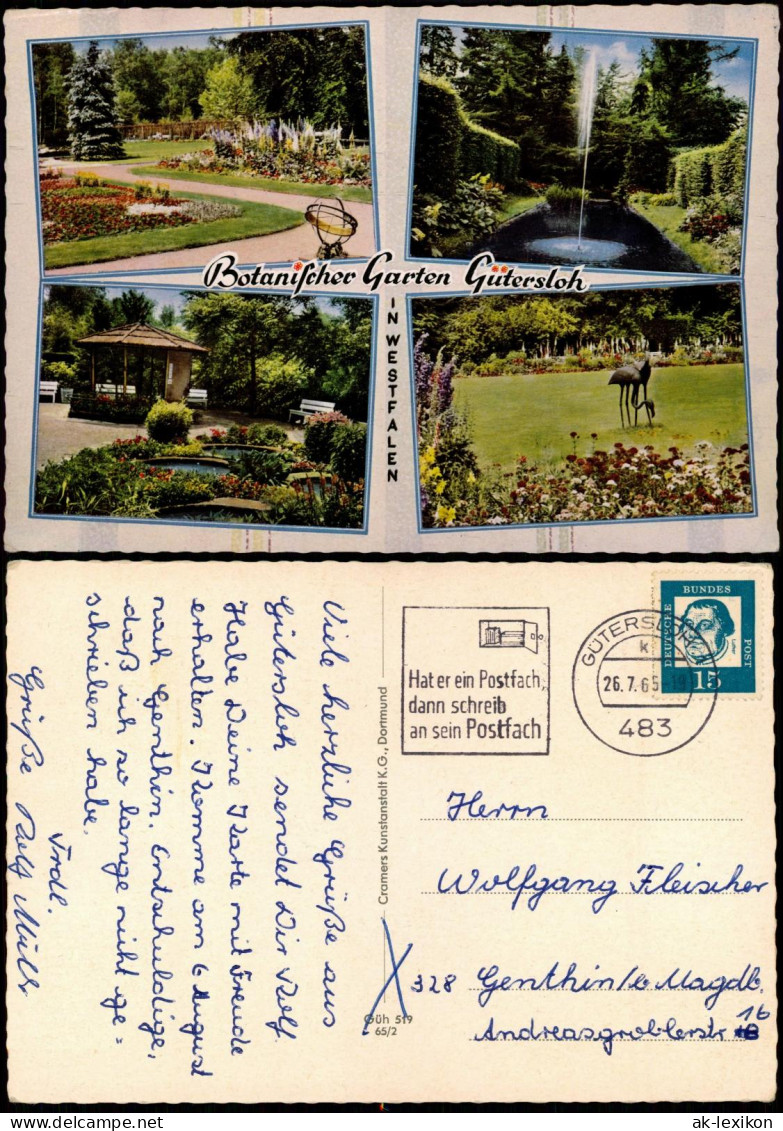 Botanischer Garten Gütersloh
IN WESTFALEN
Viele herzliche Grüße aus
Gütersloh sendet Dir Rolf.
Habe Deine Karte mit Freude
erhalten. Komme am 6 August
nach Genthin. Entschuldige,
daß ich so lange nicht ge=
schrieben habe.
Frdl.
Grüße Rolf
Cramers Kunstanstalt K.G., Dortmund
Güh 519
65/2
Hat er ein Postfach,
dann schreib
an sein Postfach
GÜTERSLOH
k
26.7.65-19
483
DEUTSCHE
BUNDES
POST
Luther
15
Herrn
Wolfgang Fleischer
328 Genthin/b Magdb.
Andreasgroblerstr 16
ak-lexikon.com